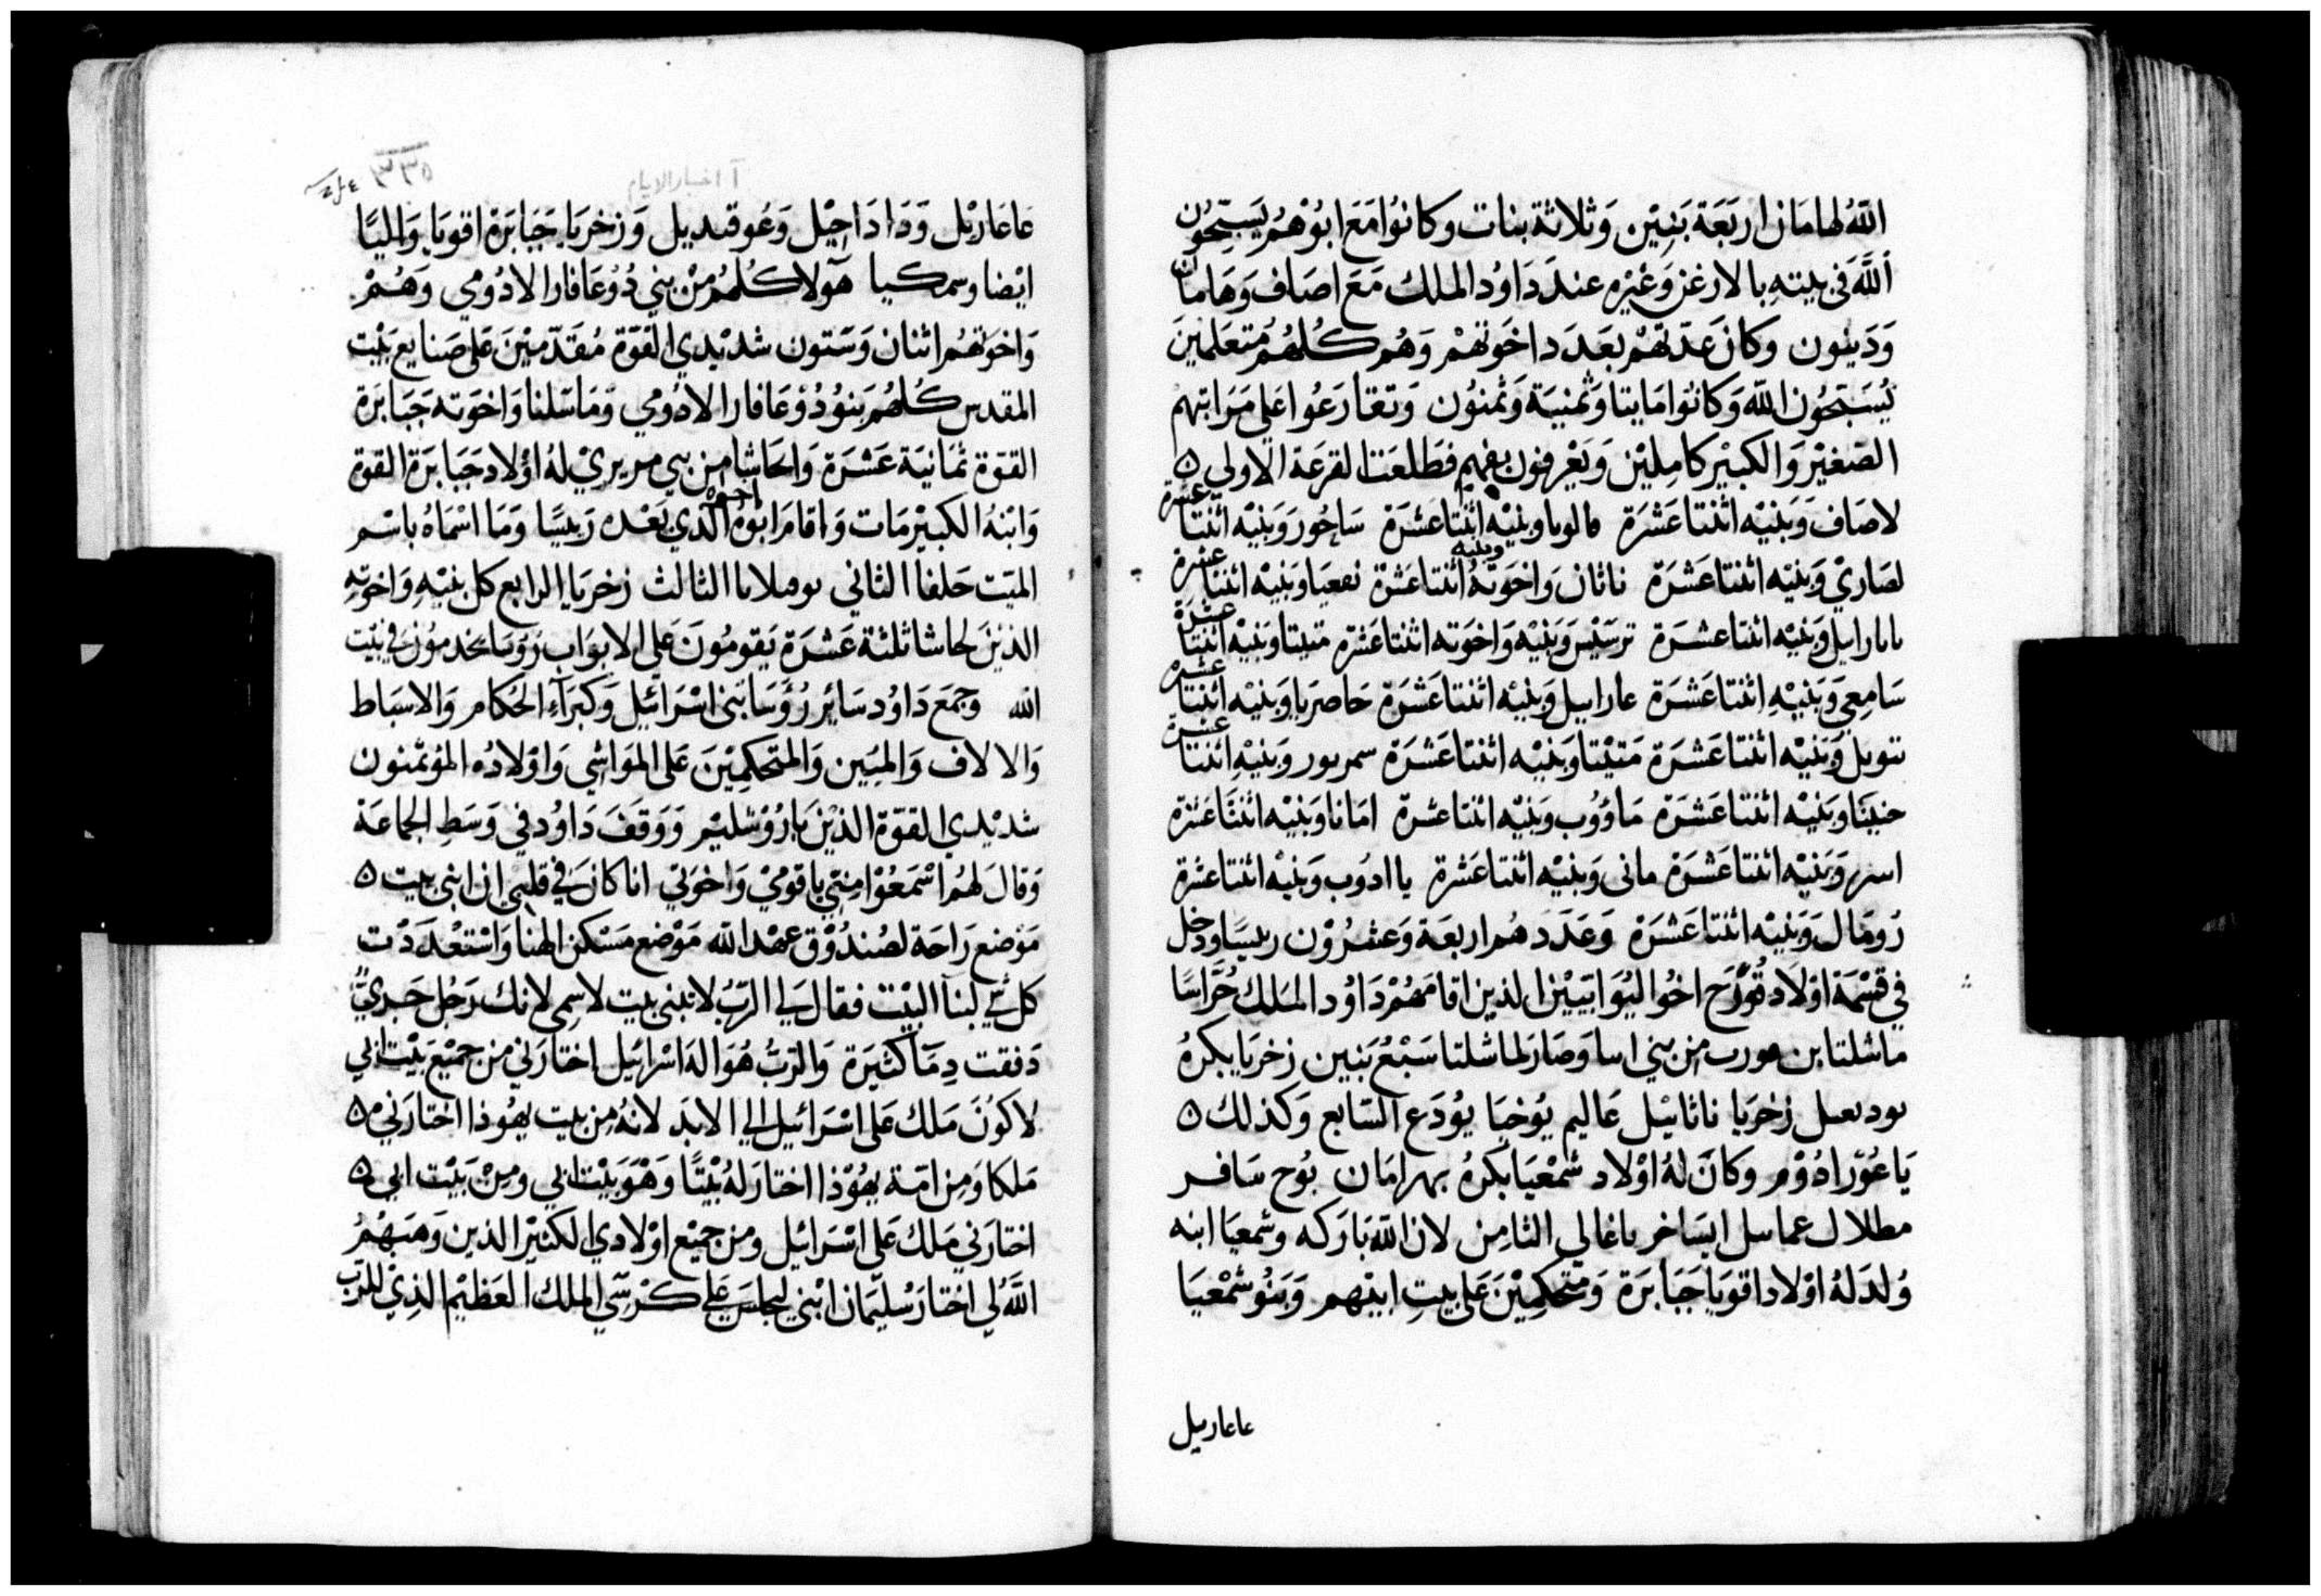 اللّٰهُ لهامَان اربَعَة بَنِيْن وَثلاثة بنات وكانوُا مَعَ ابوُهُم يسَبّحُون
اَللَّه في بيتهِ بالارغن وَغيْره عندَ دَاوُد الملك مَعَ اصَاف وَهَامَان
وَدَيثون وكانَ عدّتهُم بعَدَد اخوَتهُمْ وَهُم كُلهُم مُتعَلمِينَ
يُسَبّحُون اللّه وَكانوا مَايتا وَثمنيَة وَثمنوُن وَتقارَعُوا عَلي مَرَاتبهم
الصّغيْر وَالكبيْر كامِليْن وَيَعْرفون بفهمٍ فطَلعَت القرعَة الاولي
لاصَاف وَبَنيْه اثنتا عَشَرَة قالويا وبنيْه اثنتا عشرَة سَاحُور وَبَنيْه اثنتا عشرة
لصَاريْ وَبَنيْه اثنتا عَشَرَة ناثان وَاخوَتهُ وبنيه اثنتا عَشرَة نفعيَا وَبَنيْه اثنتا عشرة
بابارايل وَبَنيْه اثنتا عشرَة ترسَيْس وَبَنيْه وَاخوَته اثنتا عَشرَة متيتا وَبنيْه اثنتا عشرة
سَامِعي وَبَنيْهِ اثنتا عَشرَة عاراييل وَبنيْه اثنتا عَشرَة حَاصربا وَبنيْه اثنتا عشرة
تتويل وَبَنيْه اثنتا عَشرَة مَتيْتا وَبَنيْه اثنتا عَشَرَة سمربور وَبَنيْهِ اثنتا عشرة
حنينَا وَبَنيْه اثنتا عَشرَة مَاوُوب وَبنيّه اثنتا عشرة امَانا وَبنيْه اثنتا عَشرَة
اسر وَبَنيْه اثنتا عَشرَة مانى وَبنيْه اثنتا عَشرة يا ادوُب وَبنيْه اثنتا عشرة
رُومَال وَبَنيْه اثنتا عَشرَة وَعَدَدهُم اربعَة وَعشرُوْن رييسًا ودخل
في قسْمَة اوْلاد قوُرَح اخُوا ليُوَابَييْن الذين اقامَهُمْ دَاوُد الملك حُرَّاسًا
ماشلتا بن هورب من بني اسا وَصَار لماشلتا سَبْعُ بَنين زخريَا بكرهُ
يوديعيل زخرَيا ناثانيْل عَاليم يُوخيَا يوُدَع السّابع وَكذلك
يَاعُوْر ادوُوْم وَكانَ لهُ اوْلاد شمْعيَا بكرهُ يهرامَان بوُح سَافر
مطلال عماسل ايسَاخر ياغالي الثامِن لان اللّه بَارَكه وشمعيَا ابنه
وُلدَ لهُ اوْلاد اقويَا جَبَابرَة وَمتحكِميْنَ عَلى بيتِ ابيْهم وَبَنوُ شمْعيَا
عاعاريل
آ اخبار الايام
٣٣٥
عَاعَاريْل وَدَادَاحِيْل وَعُوقنديل وَزخريَا جَبَابَرَة اقويَا وَاليًا
ايْضا وسمكيا هَولا كُلهُم مِنْ بني دُوُعَافار الادُومي وَهُمْ
وَاخوَتهُم اثنان وَسّتون شديْدي القوّة مُقدّميْنَ عَلى صَنايع بَيْت
المقدس كُلهُم بَنوُ دُوْعَافار الادُومي وَمَاسّلنا وَاخوَته جَبَابرَة
القوّة ثمَانيَة عَشَرَة وَالحَاشا مِن بني مريريْ لهُ اوْلاد جَبَابرَة القوة
وَابْنهُ الكبيْر مَات وَاقامَ ابوُهُ اخوه الذي بَعْده رَييسًا وَمَا اسْمَاهُ باسْم
الميّت حَلفا الثاني يوميلايا الثالث زخريَا الرابع كل بنيْهِ وَاخوَتهِ
الذيْنَ لحاشا ثلثة عَشرَة يَقومُونَ عَلى الابوَاب رُوُسَا يخدموُن في بيْت
الله وجَمَعَ دَاوُد سَائر رُؤَسَا بَني اسْرَائيل وَكبَرَآءِ الحُكام وَالاسبَاط
وَالالاف وَالميَين وَالمتحكمِيْنَ عَلى المَوَاشي وَاوْلادُه المُؤتمنون
شديْدي القوّة الذيْنَ باُرُوُشليْم وَوَقفَ دَاوُد في وَسَطِ الجماعَة
وَقالَ لهُم اسْمَعُوْا مِنّي يا قومْي وَاخوَتي انا كانَ في قلبي ان ابني بيت
مَوْضع رَاحَة لصُندُوْق عهْد اللّه مَوْضع مَسْكن الهنا وَاسْتعْدَدْت
كل شي لبنآ البيْت فقالَ لي الرّبُ لا تبني بيت لاسمي لانك رَجُل حَربيٌّ
دَفقت دِمَآ كثيَرة وَالرّبُّ هُوَ اله اسْرائيل اختارَني من جميْع بَيْت ابي
لاكوُنَ مَلك عَلى اسْرَائيل الي الابَد لانهُ مِن بيت يهُوذا اختارَني
مَلكا وَمِن امّة يهُوْذا اختارَ لهُ بَيْتًا وَهْوَ بَيْت ابي ومِنْ بَيْت ابي
اختارَني مَلك عَلى اسْرَائيل ومن جميْع اوْلادي الكثيْر الذين وَهَبهُمُ
اللَّهُ لي اختارَ سُليْمان ابني ليجلسَ عَلي كرْسّي الملك العَظيْم الذِيْ للرّب